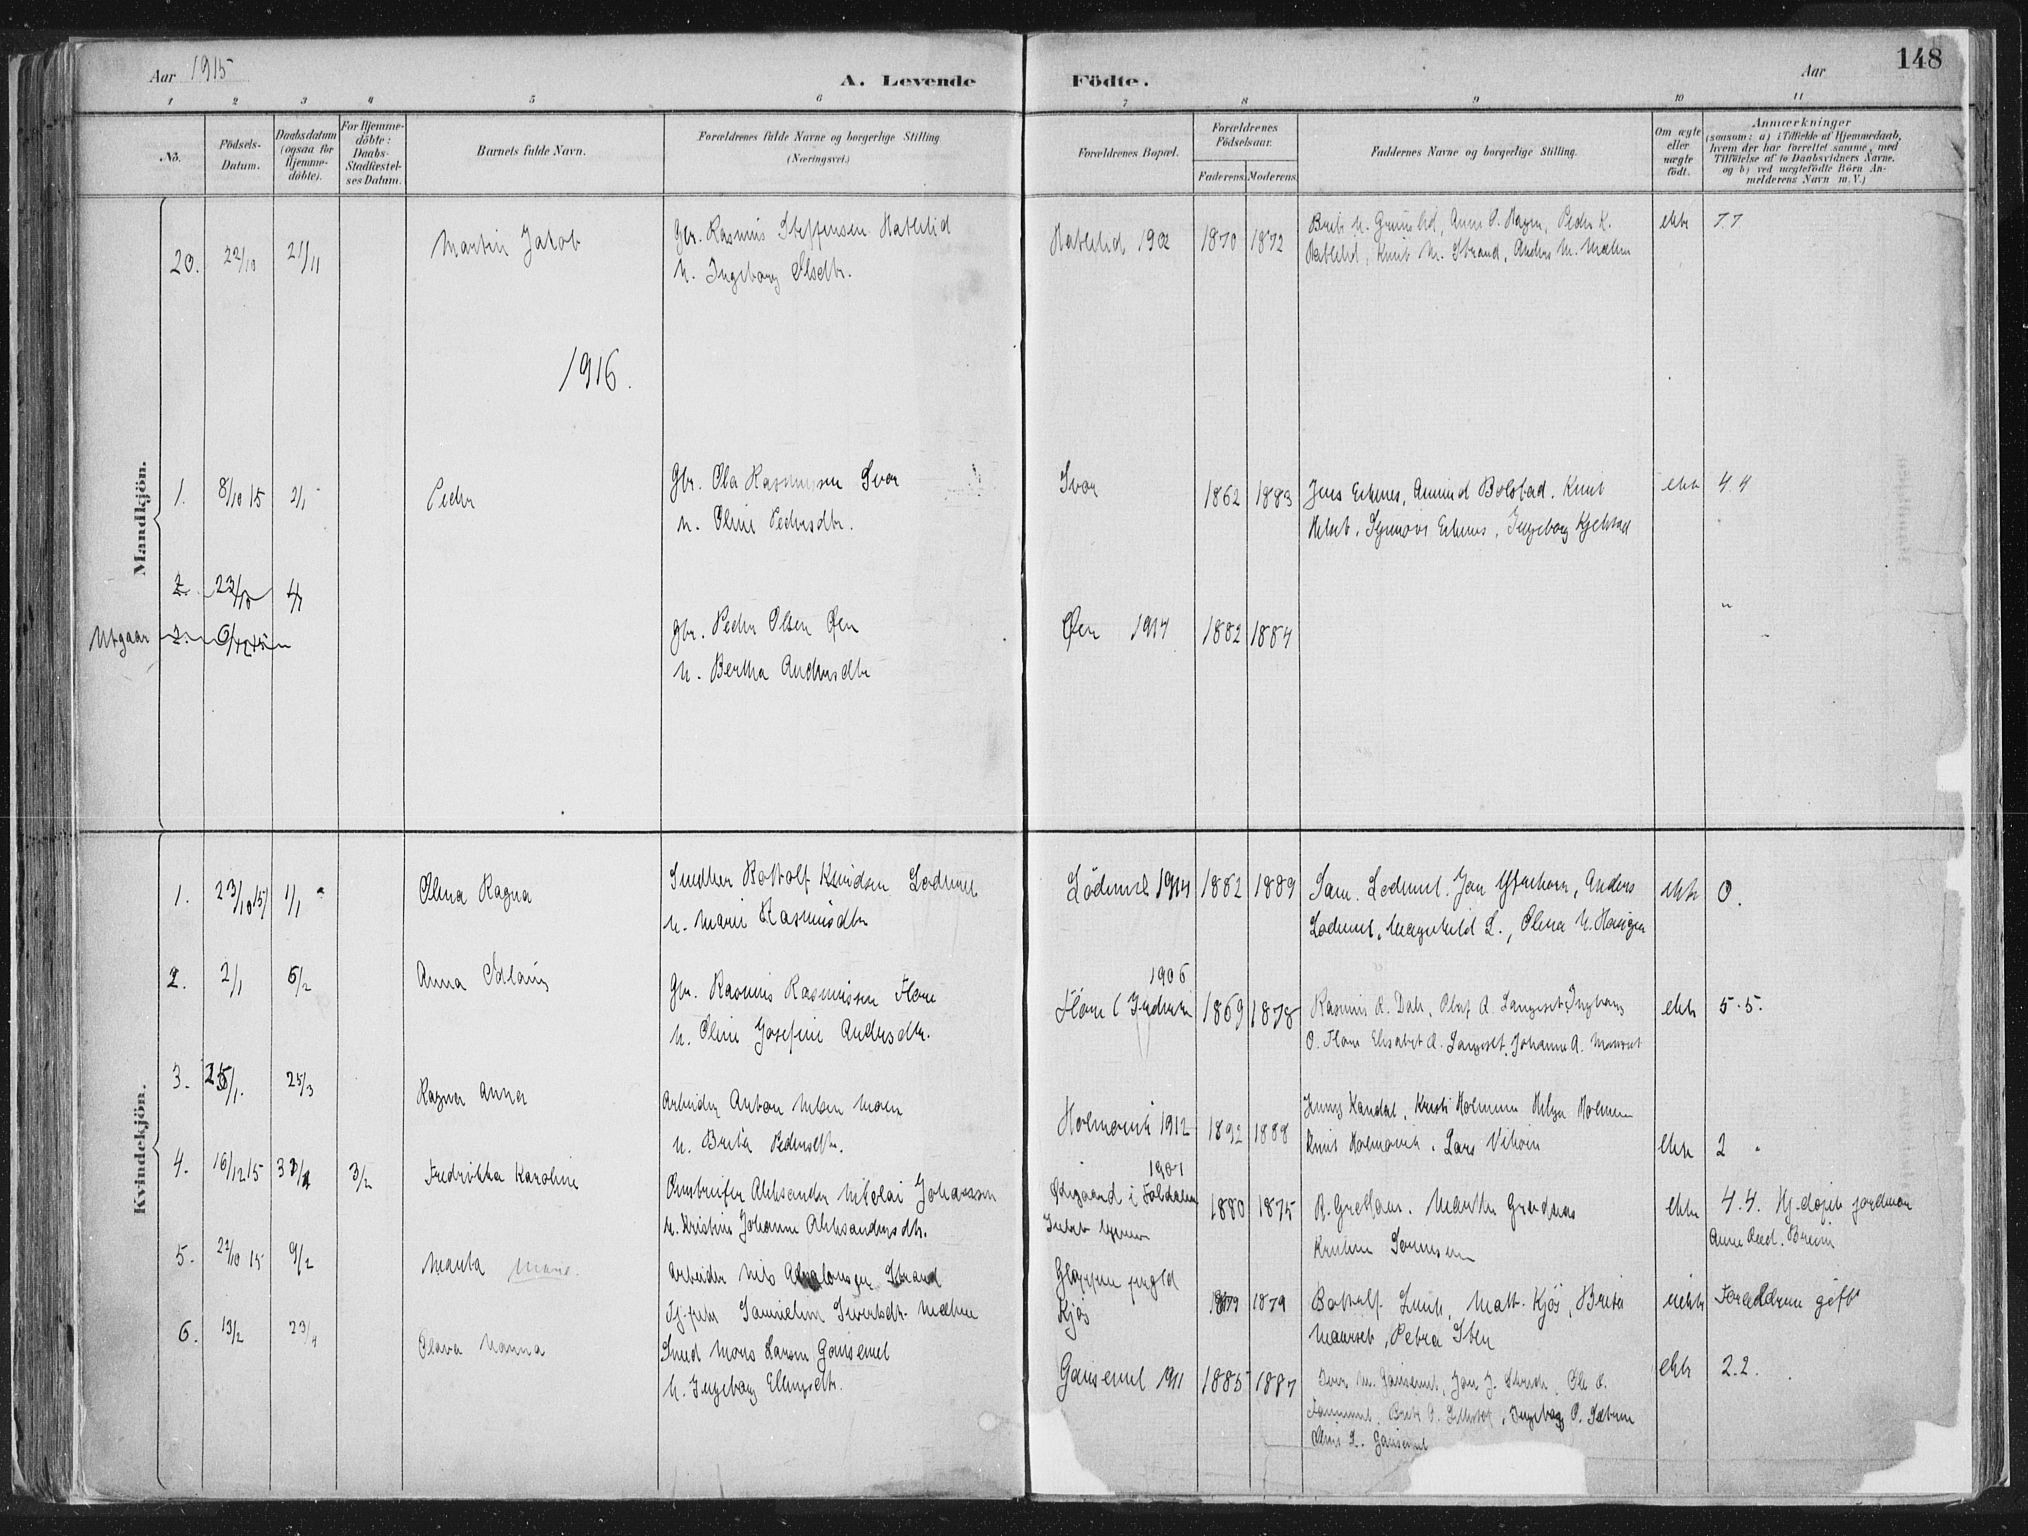 148
Aar 1915
A. Levende Födte.
Aar
1 2 3 4 5 6 7 8 9 10 11
No.
Födsels-
Datum.
Daabsdatum
(ogsaa for
Hjemme-
döbte).
For Hjemme-
döbte:
Daabs-
Stadfæstel-
ses Datum.
Barnets fulde Navn.
Forældrenes fulde Navne og borgerlige Stilling
(Næringsvei.)
Forældrenes Bopæl.
Forældrenes
Födselsaar.
Faderens. Moderens.
Faddernes Navne og borgerlige Stilling.
Om ægte
eller
uægte
födt.
Anmærkninger
(saasom: a) i Tilfælde af Hjemmedaab,
hvem der har forrettet samme, med
Tilföielse af to Daabsvidners Navne.
og b) ved uægtefödte Börn An-
melderens Navn m. V.)
Mandkjön.
20. 22/10 21/11 Martin Jakob
Gbr. Rasmus Steffensen Hatlelid
h. Ingeborg Olsdtr.
Hatlelid 1902 1870 1872
Anne P. Hagen, Peder K.
Hatlelid, Knut M. Strand, Anders M. Mælen
ekte 7.7
1916.
1. 8/10 15 2/1 Peder
Gbr. Ola Rasmussen Svor
h. Oline Pedersdtr.
Svor 1862 1883
Jens Eikenes, Amund Bolstad. Knut
Helset. Synnøve Eikenes, Ingeborg Kjelstad
ekte 4.4
2. 23/10 4/1
Utgaar 2. 6/12 15
Gbr. Peder Olsen Øen
h. Bertha Andersdtr
Øen 1914 1882 1884
Kvindekjön.
1. 23/10 15 1/1 Olena Ragna
Snedker Botolf Knudsen Lødemel
h. Marie Rasmusdtr
Lødemel 1914 1882 1889
Sam. Lødemel. Jon Ytrehorn, Anders
Lødemel, Magnhild L., Olena N. Haugen
ekte 0.
2. 2/1 6/2 Anna Oddlaug
Gbr. Rasmus Rasmussen Flore
h. Oline Josefine Andersdtr.
1906
Flore (Indvik) 1869 1878
Rasmus R. Dale, Oluf A. Langeset, Ingeborg
O. Flore Elisabet A. Langeset. Johanne A.
ekte 5.5.
3. 25/1. 25/3 Ragna Anna
Arbeider Anton Nelsen Moen
h. Brita Pedersdtr.
Holmøvik 1912 1892 1888
Jenny Kandal, Kristi Holmen Helga Holmen
Knut Holmøvik. Lars Vikøren
ekte 2
4. 16/12 15 3/2 Fredrikka Karoline
Aleksander Nikolai Johansson
h. Kristine Johanne Aleksandersdtr.
1901
Ødegaard i Foldalen
1880 1875
Marthe Grednæs
Sørensen
ekte 4.4. Hj.døpt jordmor
Anne Aad. Breim
5. 21/10 15 9/2 Marta Marie.
Arbeider Nils Strand
Samueline Sivertsdtr. Mælen
Gloppen
Kjøs
1879 1879
Botolf Matt. Kjøs, Brita
Maurset, Petra Iben
uekte Forældrene gift
6. 13/2 23/4 Olava Nanna
Smed Mons Larsen Gausemel
h. Ingeborg Ellingsdtr.
Gausemel 1911 1885 1887
Iver M. Gausemel, Jon J.
Ingeborg P. Sætren
L. Gausemel
ekte 2.2.